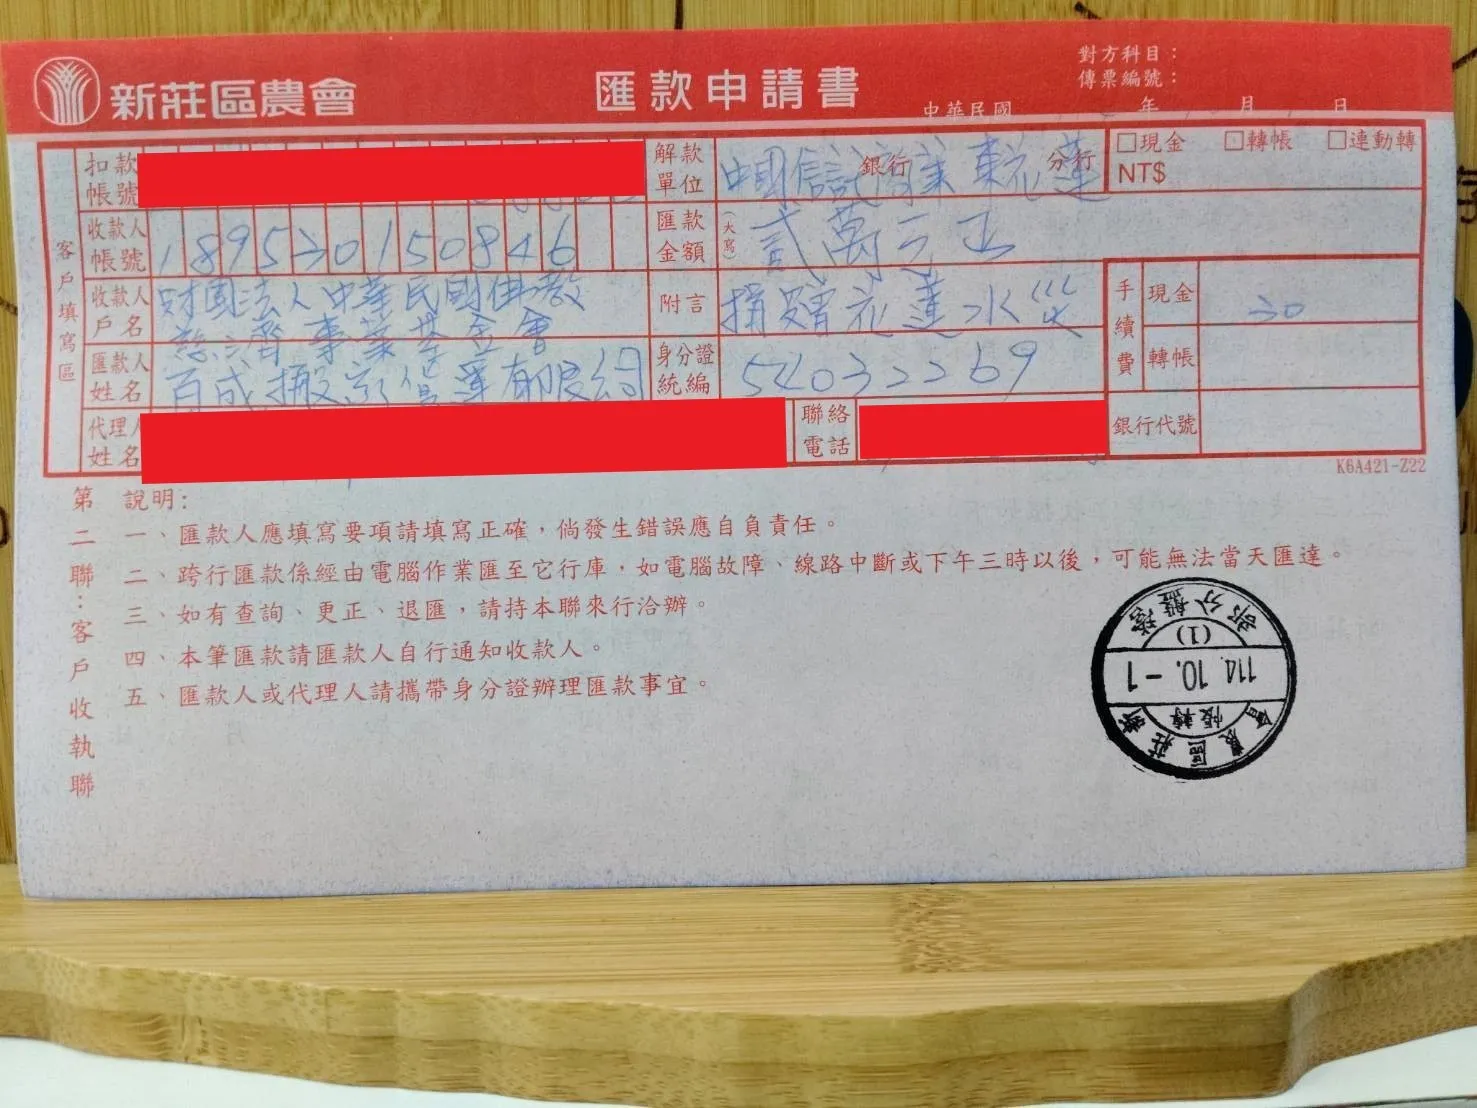 新莊區農會
匯款申請書
對方科目：
傳票編號：
中華民國 年 月 日
客戶填寫區
扣款帳號
解款單位 中國信託商業銀行 東花蓮分行
□現金 □轉帳 □連動轉
NT$
收款人帳號 189530150846
匯款金額 (大寫) 貳萬元正
收款人戶名 財團法人中華民國佛教
慈濟事業基金會
附言 捐贈花蓮水災
手續費 現金 30
轉帳
匯款人姓名 百成搬家貨運有限公司
身分證統編 52032269
代理人姓名
聯絡電話
銀行代號
K6A421-Z22
第二聯：客戶收執聯
說明:
一、匯款人應填寫要項請填寫正確，倘發生錯誤應自負責任。
二、跨行匯款係經由電腦作業匯至它行庫，如電腦故障、線路中斷或下午三時以後，可能無法當天匯達。
三、如有查詢、更正、退匯，請持本聯來行洽辦。
四、本筆匯款請匯款人自行通知收款人。
五、匯款人或代理人請攜帶身分證辦理匯款事宜。
新莊區農會
轉帳
114.10.-1
(1)
塔盤分部